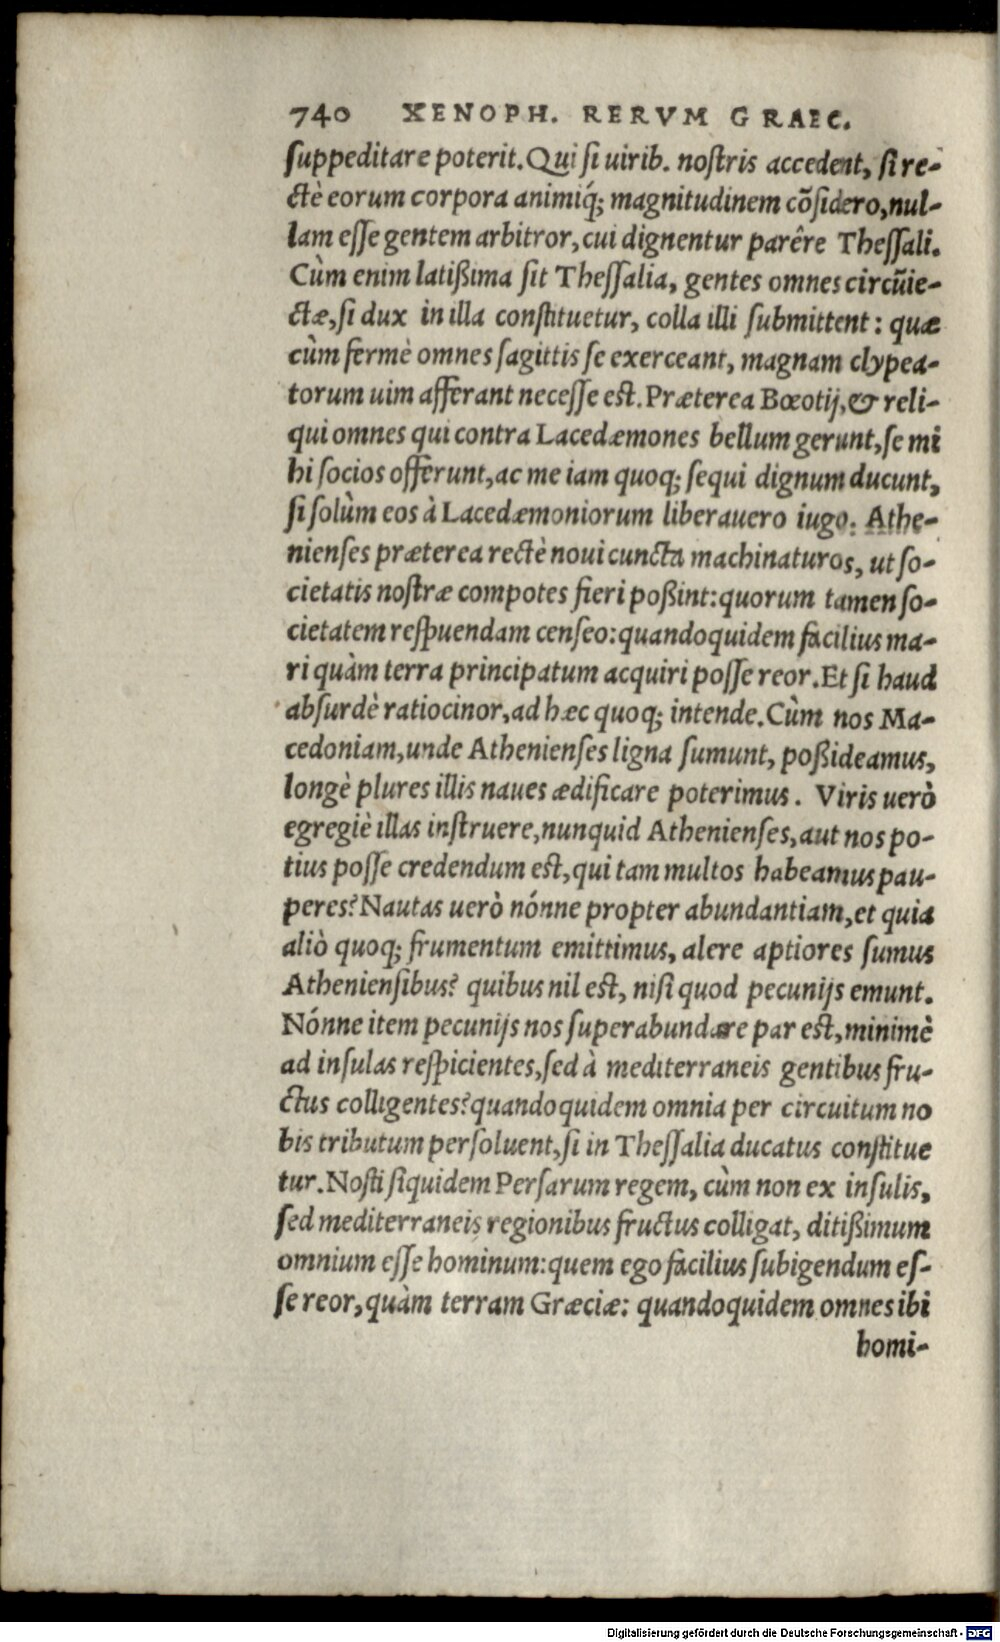 740 XENOPH. RERVM GRAEC.
ſuppeditare poterit. Qui ſi uirib. noſtris accedent, ſi re-
ctè eorum corpora animiq́; magnitudinem cõſidero, nul-
lam eſſe gentem arbitror, cui dignentur parêre Theſſali.
Cùm enim latißima ſit Theſſalia, gentes omnes circũie-
ctæ, ſi dux in illa conſtituetur, colla illi ſubmittent: quæ
cùm fermè omnes ſagittis ſe exerceant, magnam clypea-
torum uim afferant neceſſe eſt. Præterea Bœotij, & reli-
qui omnes qui contra Lacedæmones bellum gerunt, ſe mi
hi ſocios offerunt, ac me iam quoq; ſequi dignum ducunt,
ſi ſolùm eos à Lacedæmoniorum liberauero iugo. Athe-
nienſes præterea rectè noui cuncta machinaturos, ut ſo-
cietatis noſtræ compotes fieri poßint: quorum tamen ſo-
cietatem reſpuendam cenſeo: quandoquidem facilius ma-
ri quàm terra principatum acquiri poſſe reor. Et ſi haud
abſurdè ratiocinor, ad hæc quoq; intende. Cùm nos Ma-
cedoniam, unde Athenienſes ligna ſumunt, poßideamus,
longè plures illis naues ædificare poterimus. Viris uerò
egregiè illas inſtruere, nunquid Athenienſes, aut nos po-
tius poſſe credendum eſt, qui tam multos habeamus pau-
peres? Nautas uerò nónne propter abundantiam, et quia
aliò quoq; frumentum emittimus, alere aptiores ſumus
Athenienſibus? quibus nil eſt, niſi quod pecunijs emunt.
Nónne item pecunijs nos ſuperabundare par eſt, minimè
ad inſulas reſpicientes, ſed à mediterraneis gentibus fru-
ctus colligentes? quandoquidem omnia per circuitum no
bis tributum perſoluent, ſi in Theſſalia ducatus conſtitue
tur. Noſti ſiquidem Perſarum regem, cùm non ex inſulis,
ſed mediterraneis regionibus fructus colligat, ditißimum
omnium eſſe hominum: quem ego facilius ſubigendum eſ-
ſe reor, quàm terram Græciæ: quandoquidem omnes ibi
homi-
Digitalisierung gefördert durch die Deutsche Forschungsgemeinschaft - DFG